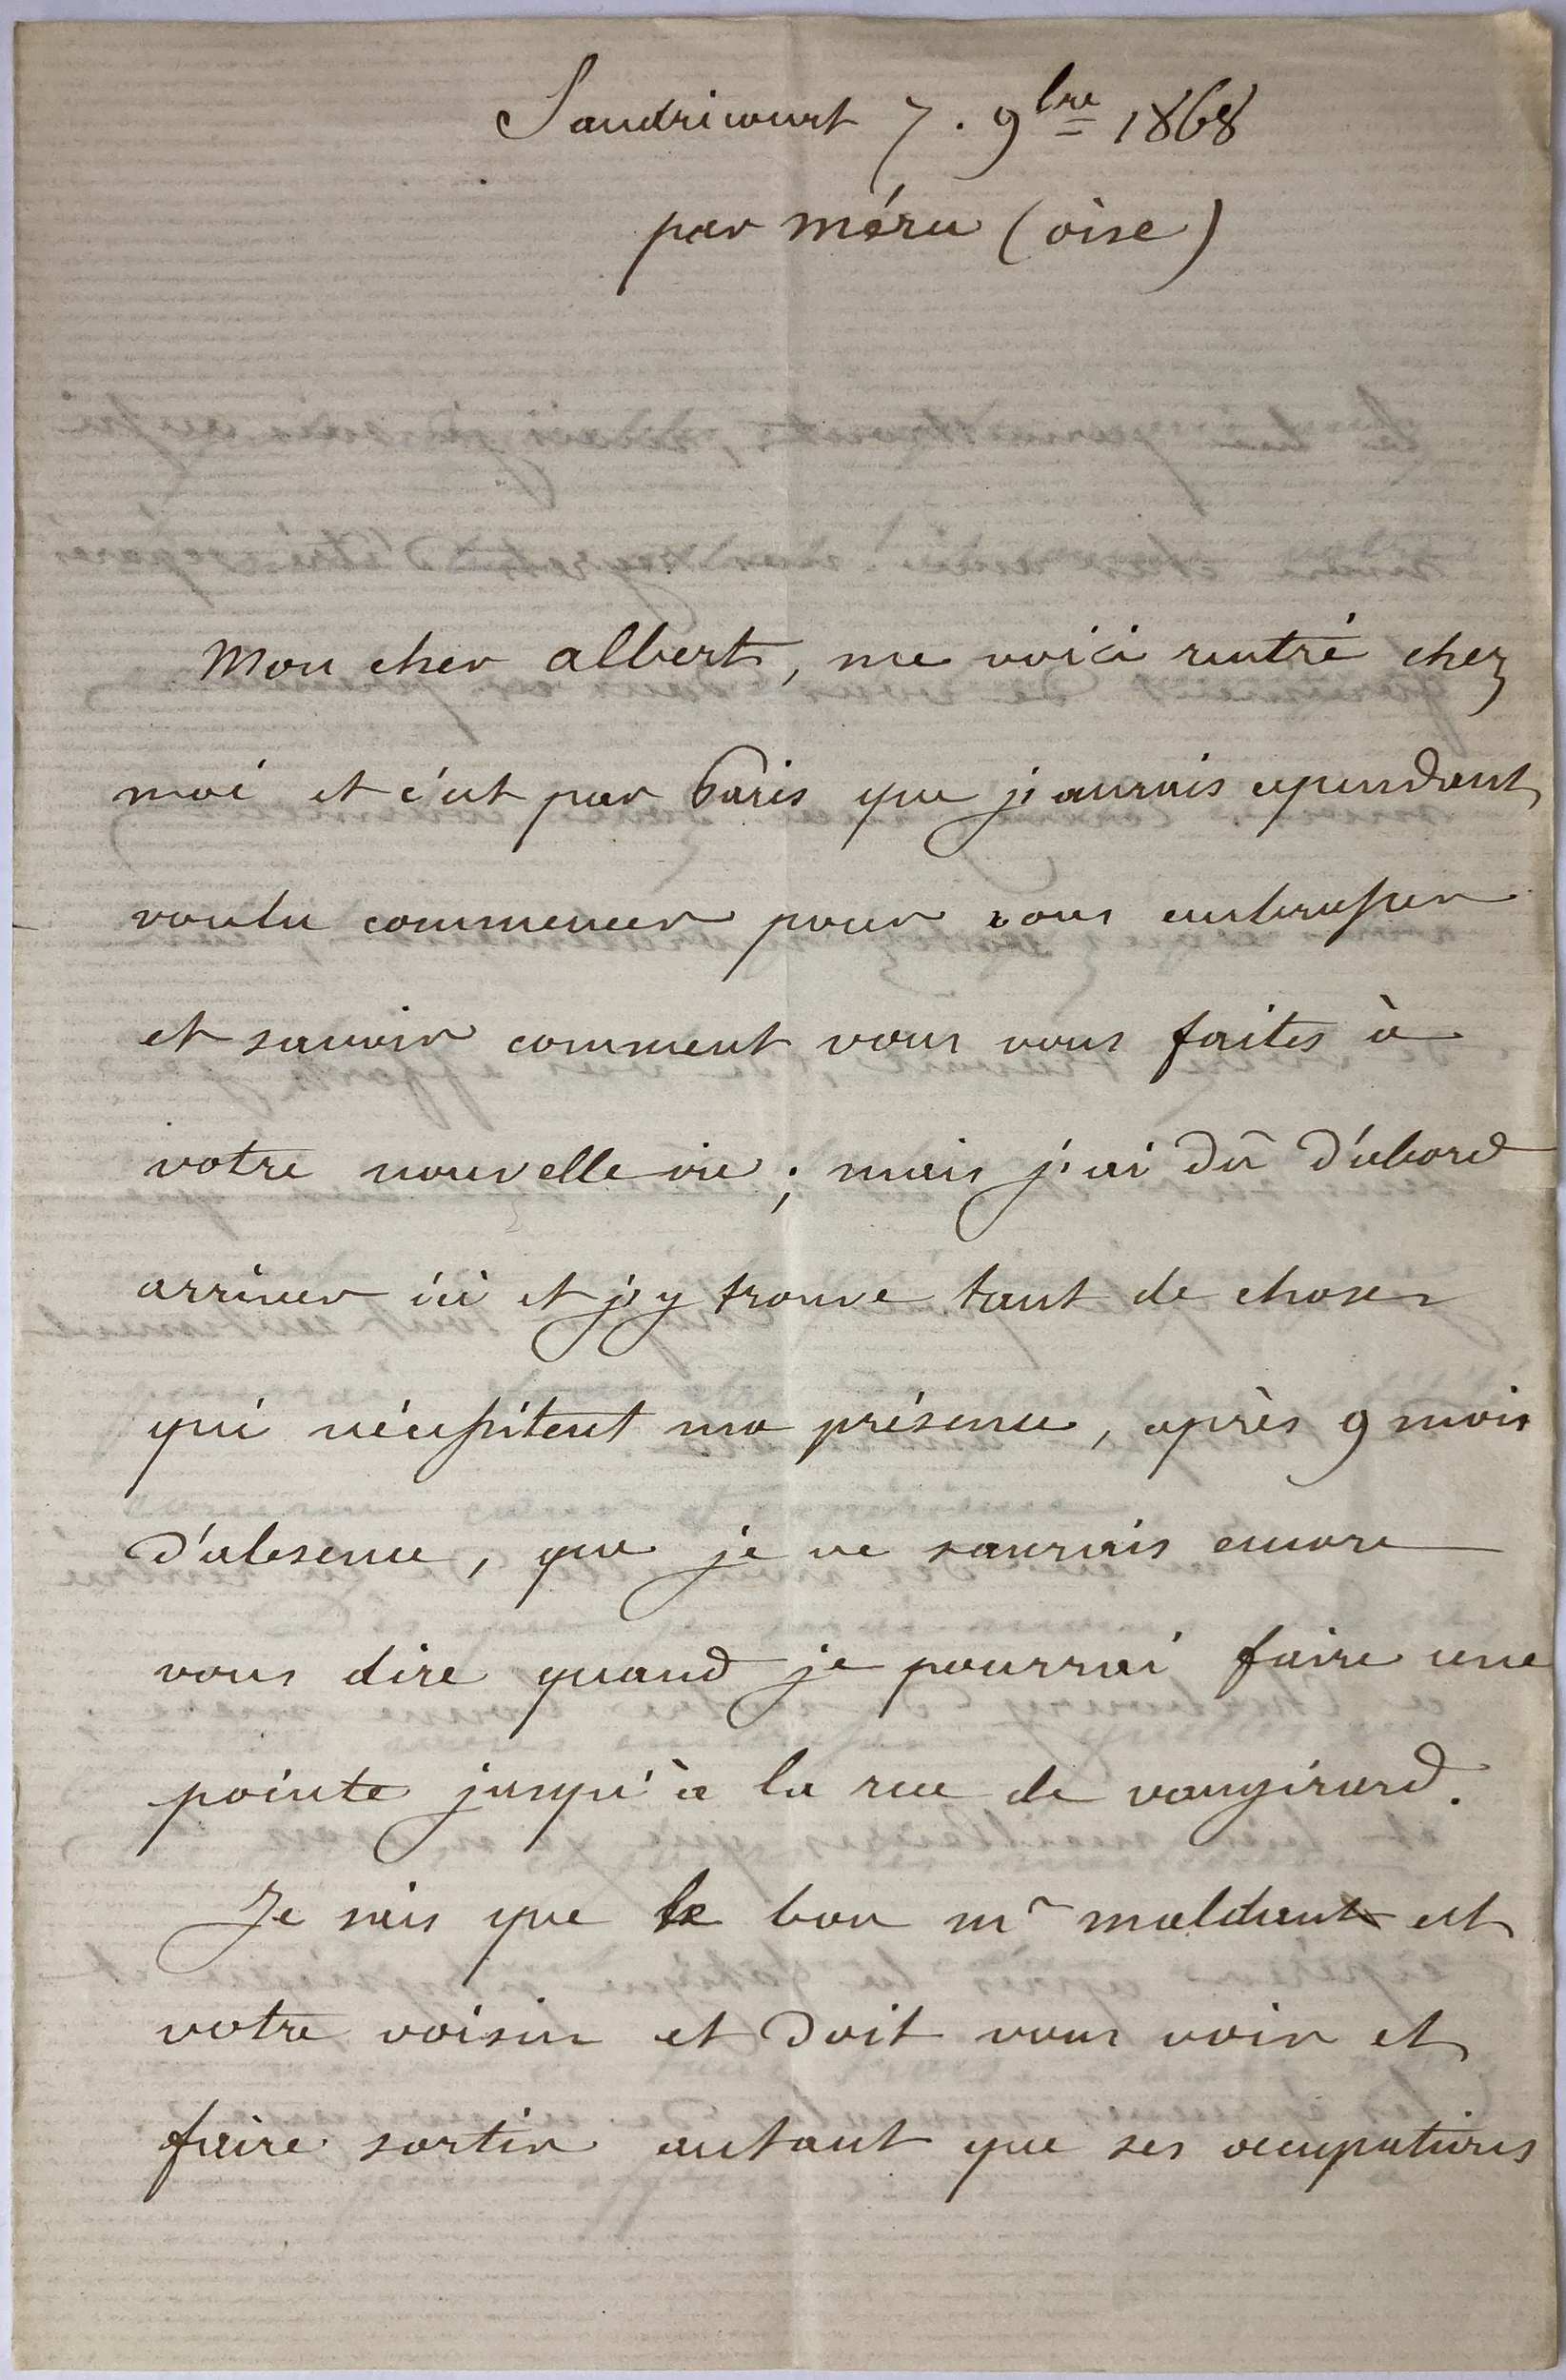 Sandricourt 7. 9bre 1868
par méru (oise)
Mon cher albert, me voici rentré chez
moi et c'est par Paris que j'aurais cependant
voulu commencer pour vous embrasser
et savoir comment vous vous faites à
votre nouvelle vie ; mais j'ai dû d'abord
arriver ici et j'y trouve tant de choses
qui nécessitent ma présence, après 9 mois
d'absence, que je ne saurais encore
vous dire quand je pourrai faire une
pointe jusqu'à la rue de vaugirard.
Je sais que le bon mr maldant est
votre voisin et doit vous voir et
faire sortir autant que ses occupations